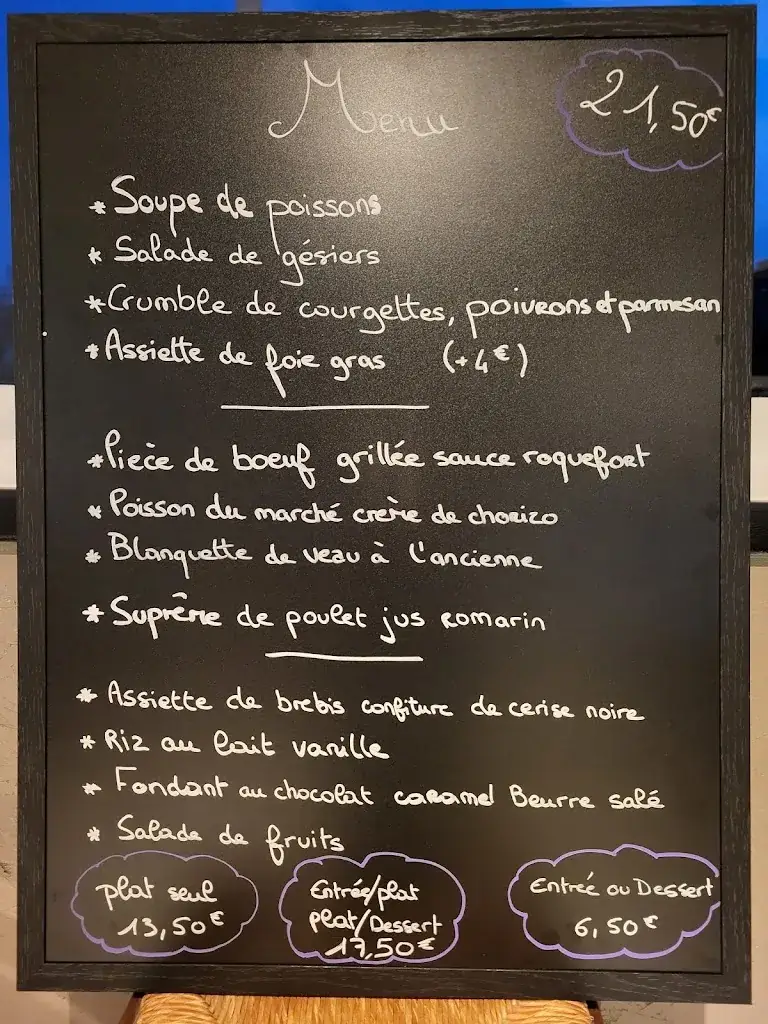 Menu
21,50€
* Soupe de poissons
* Salade de gésiers
* Crumble de courgettes, poivrons et parmesan
* Assiette de foie gras (+4€)
* Pièce de boeuf grillée sauce roquefort
* Poisson du marché crème de chorizo
* Blanquette de veau à l'ancienne
* Suprême de poulet jus romarin
* Assiette de brebis confiture de cerise noire
* Riz au lait vanille
* Fondant au chocolat caramel Beurre salé
* Salade de fruits
plat seul
13,50€
Entrée/plat
plat/Dessert
17,50€
Entrée ou Dessert
6,50€